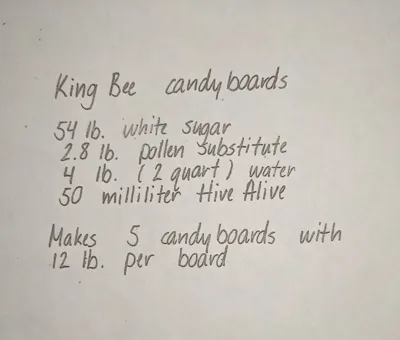 King Bee candy boards
54 lb. white sugar
2.8 lb. pollen substitute
4 lb. (2 quart) water
50 milliliter Hive Alive
Makes 5 candy boards with
12 lb. per board